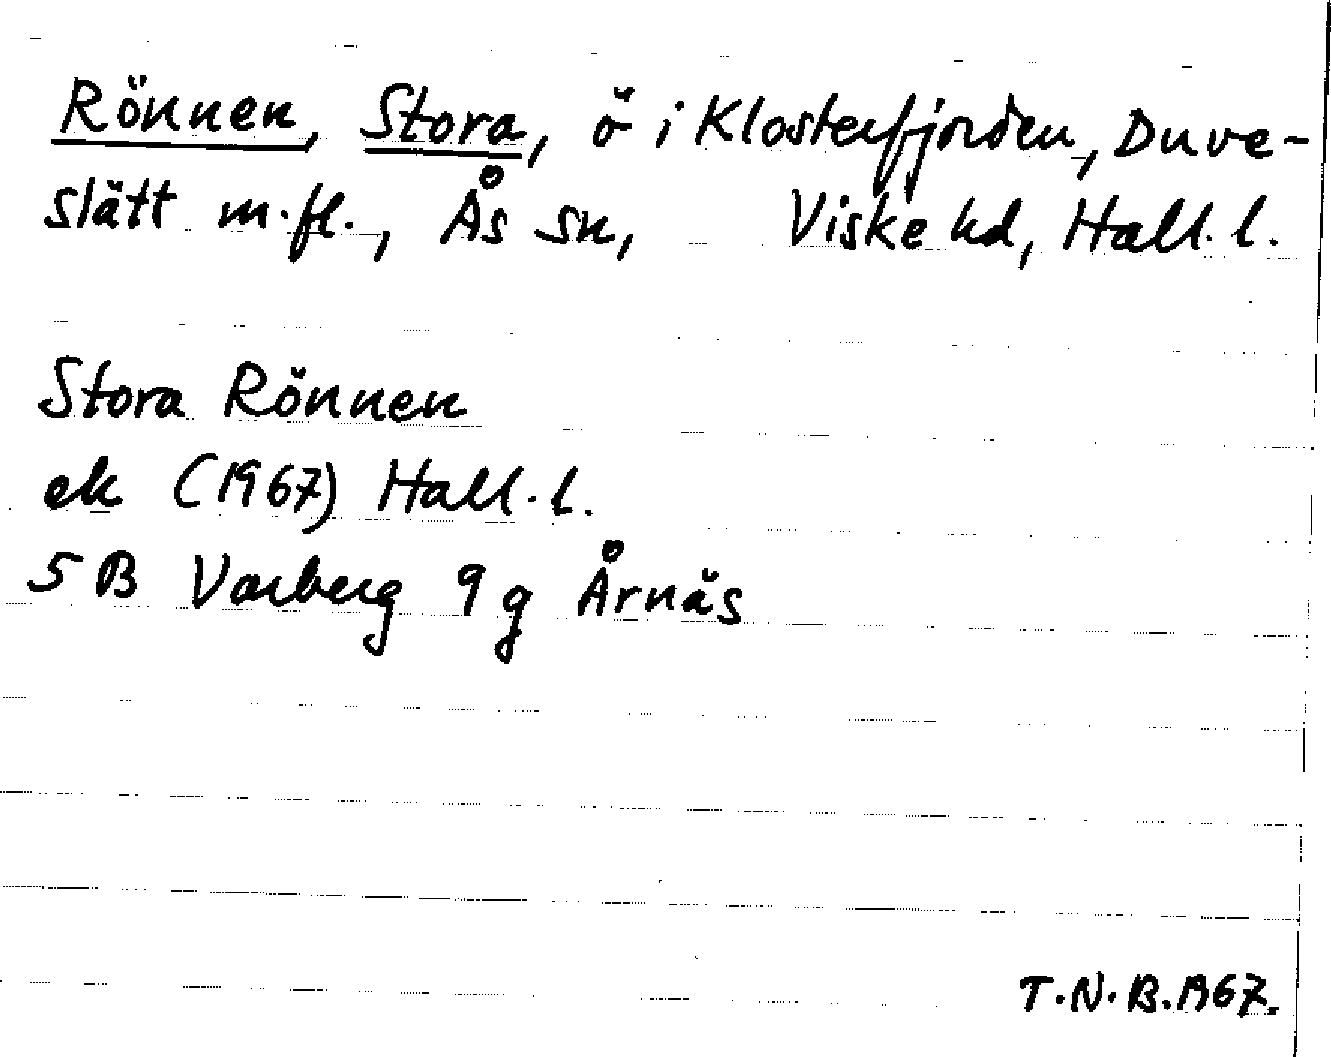 Rönnen, Stora, ö i Klosterfjorden, Duve-
slätt m.fl., Ås sn, Viske hd, Hall. l.
Stora Rönnen
ek (1967) Hall. l.
5 B Varberg 9 g Årnäs
T.N.B. 1967.